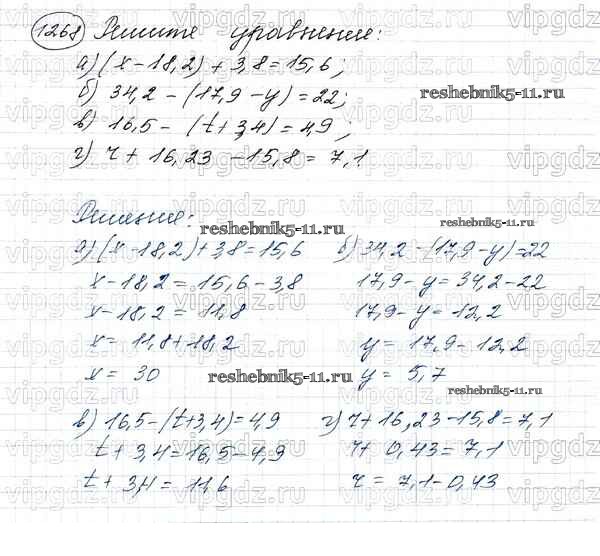 1268 Решите уравнение:
а) (x-18,2) + 3,8 = 15,6;
б) 34,2 - (17,9 - y) = 22;
в) 16,5 - (t + 3,4) = 4,9;
г) r + 16,23 - 15,8 = 7,1
Решение:
а) (x-18,2) + 3,8 = 15,6
x - 18,2 = 15,6 - 3,8
x - 18,2 = 11,8
x = 11,8 + 18,2
x = 30
б) 34,2 - (17,9 - y) = 22
17,9 - y = 34,2 - 22
17,9 - y = 12,2
y = 17,9 - 12,2
y = 5,7
в) 16,5 - (t + 3,4) = 4,9
t + 3,4 = 16,5 - 4,9
t + 3,4 = 11,6
г) r + 16,23 - 15,8 = 7,1
r + 0,43 = 7,1
r = 7,1 - 0,43
reshebnik5-11.ru
reshebnik5-11.ru
reshebnik5-11.ru
reshebnik5-11.ru
reshebnik5-11.ru
vipgdz.ru